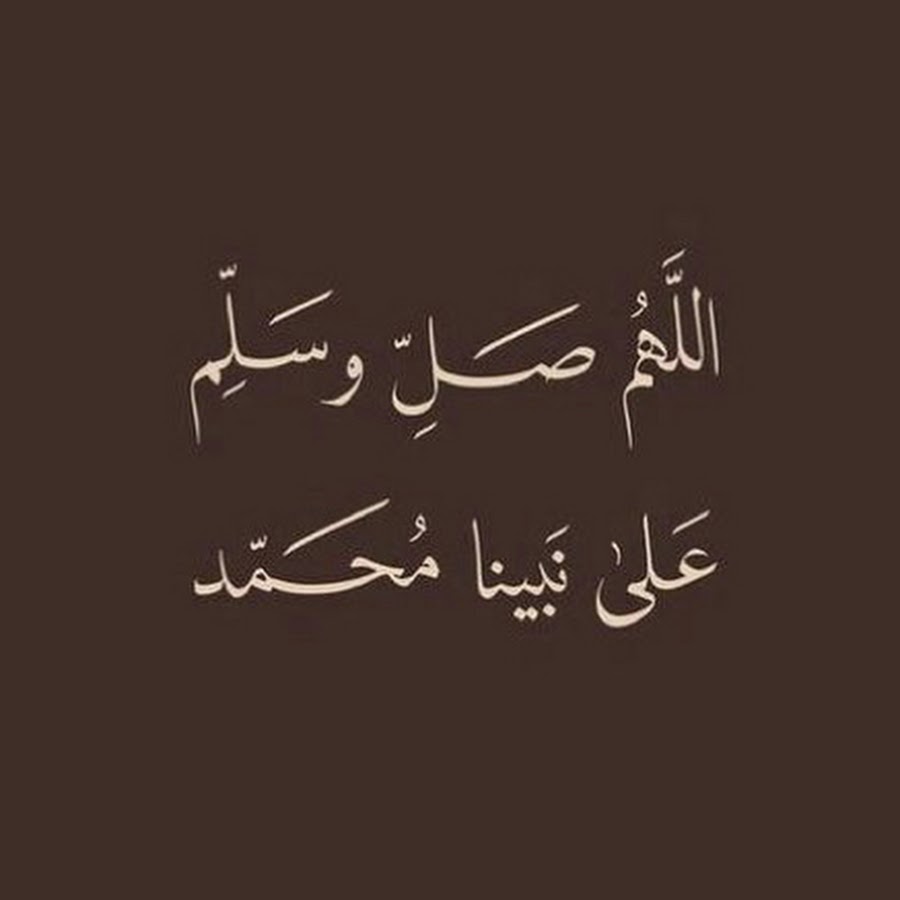 اللَّهُم صَلِّ وسَلِّم
عَلىٰ نَبينا مُحَمّد